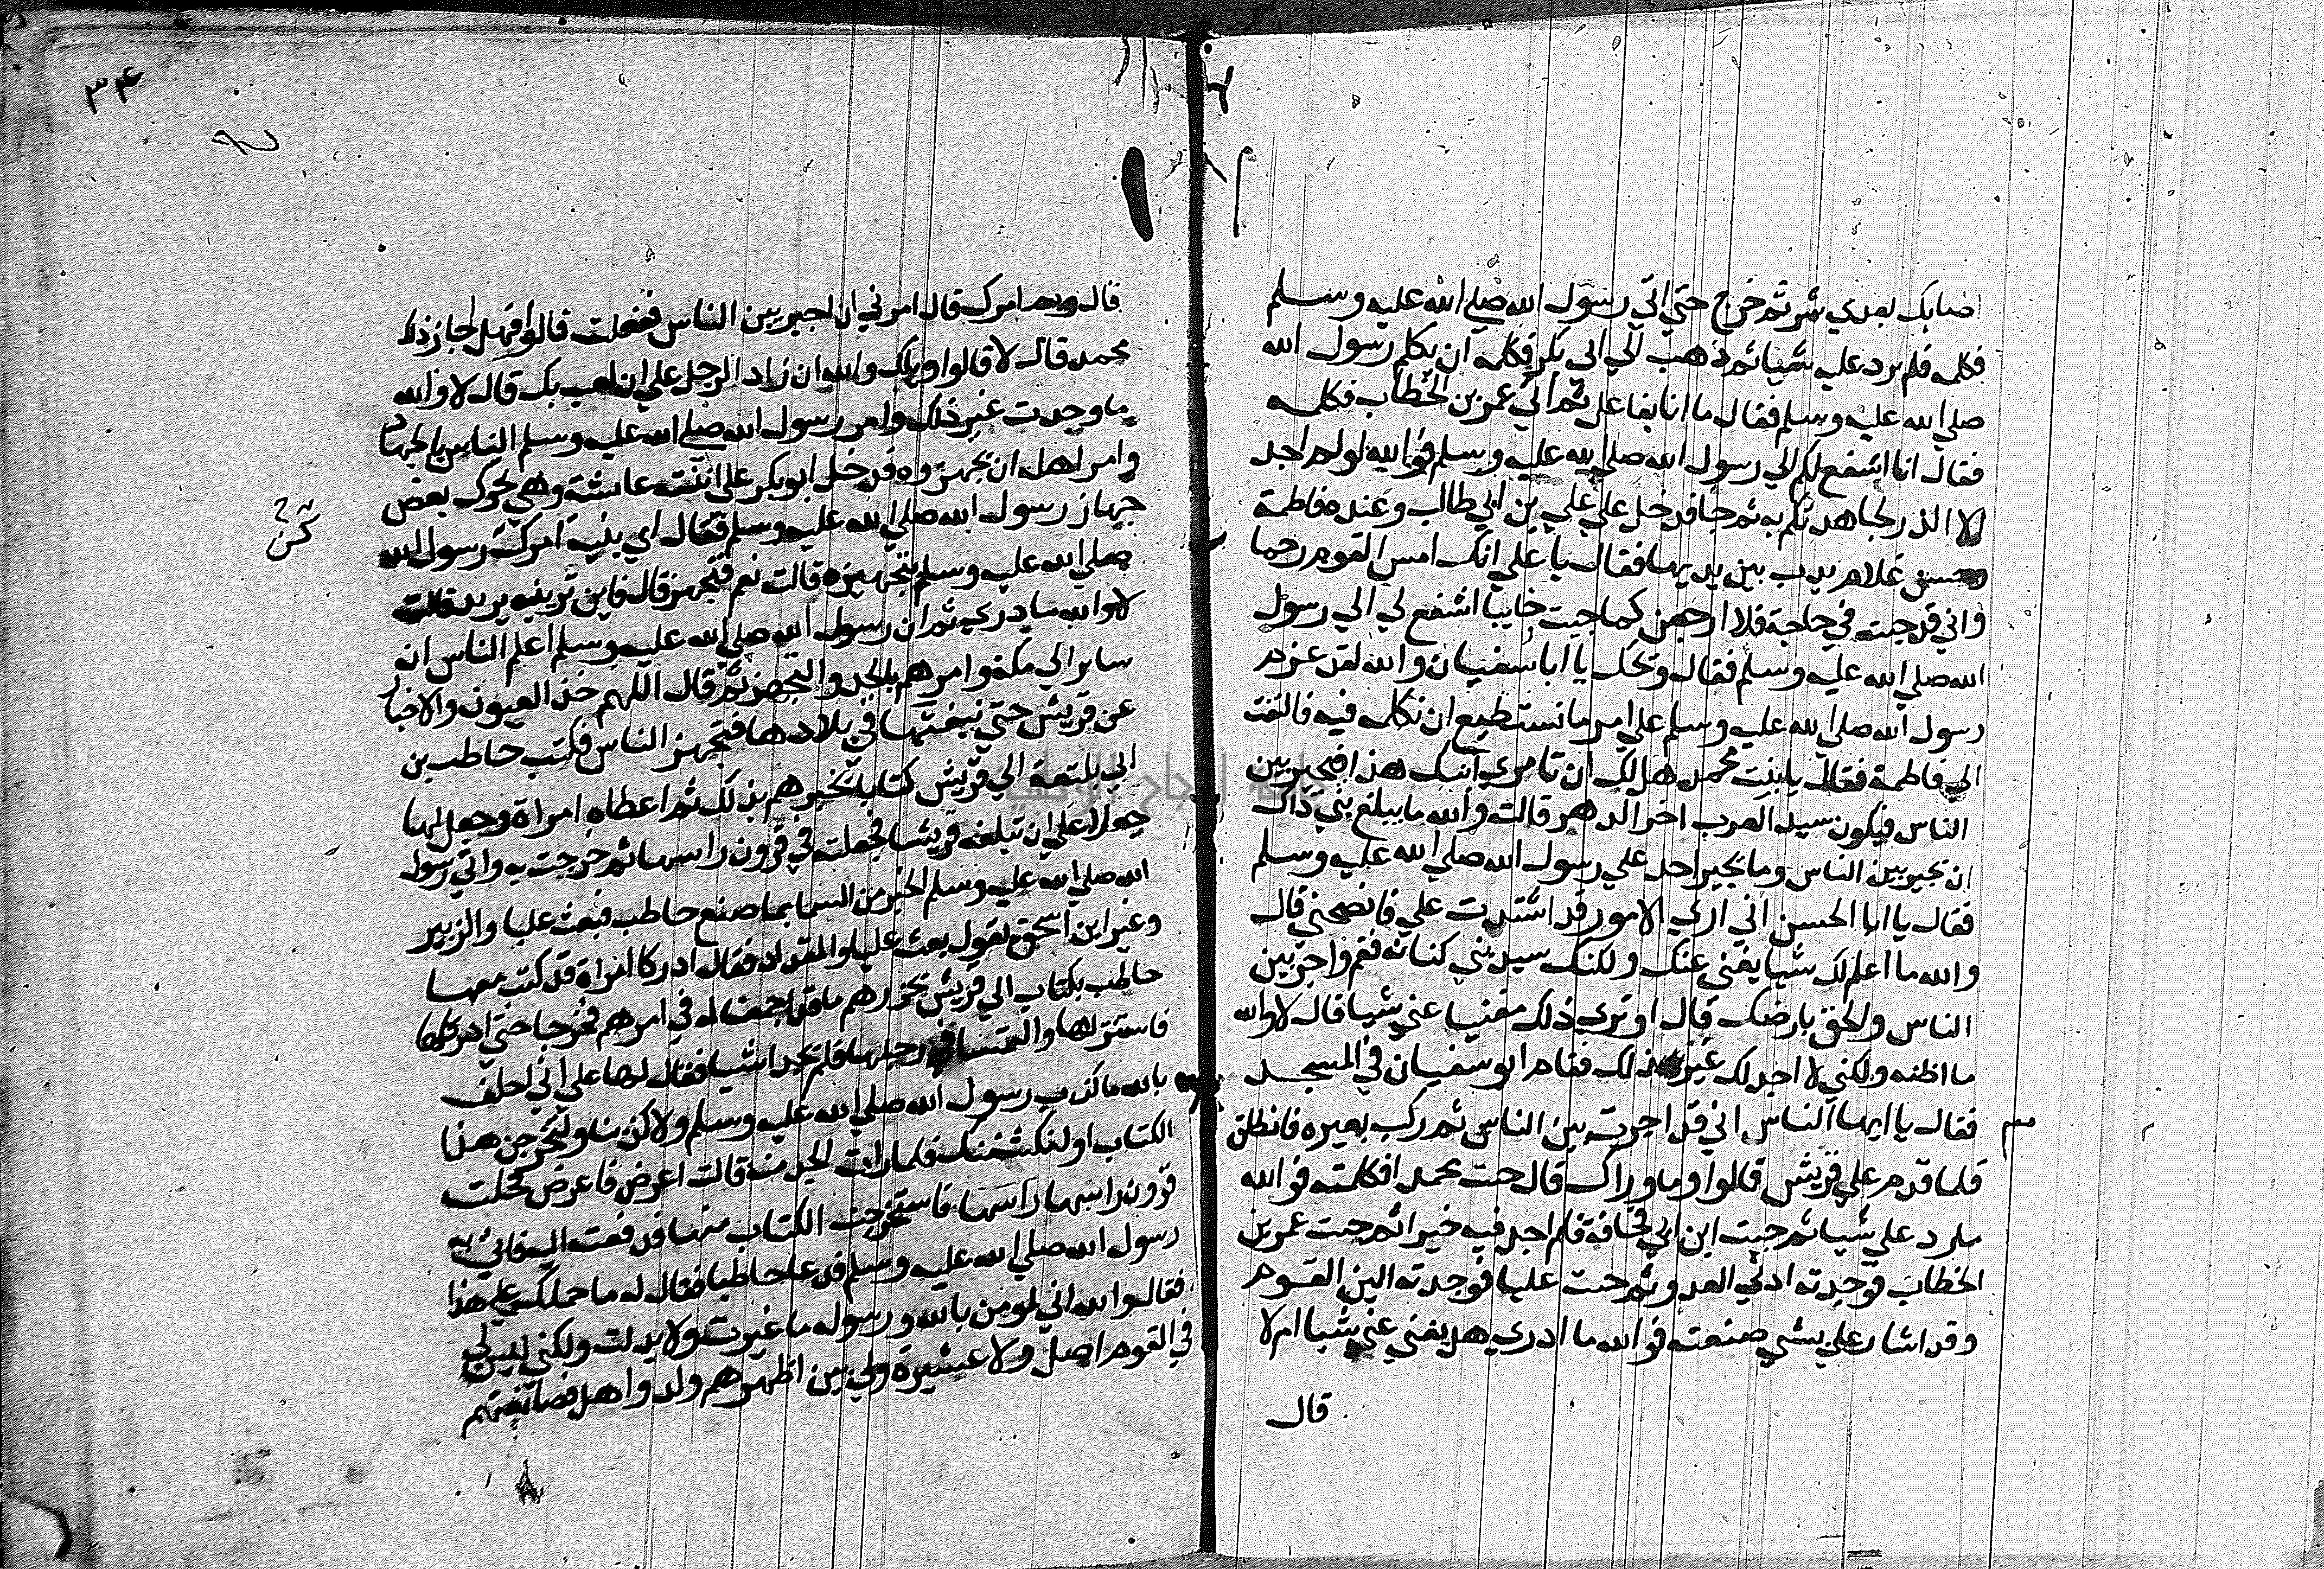 اصابك بعدي شر ثم خرج حتي اتي رسول الله صلي الله عليه وسلم
فكلمه فلم يرد عليه شيا ثم ذهب الي ابي بكر فكلمه ان يكلم رسول الله
صلي الله عليه وسلم فقال ما انا بفاعل ثم اتي عمر بن الخطاب فكلمه
فقال انا اشفع لكم الي رسول الله صلي الله عليه وسلم فوالله لو لم اجد
الا الذر لجاهدتكم به ثم جا فدخل علي علي بن ابي طالب وعنده فاطمة
وحسن غلام يدب بين يديها فقال يا علي انك امس القوم رحما
واني قد جيت في حاجة فلا ارجعن كما جيت خايبا اشفع لي الي رسول
الله صلي الله عليه وسلم فقال ويحك يا ابا سفيان والله لقد عزم
رسول الله صلي الله عليه وسلم علي امر ما نستطيع ان نكلمه فيه فالتفت
الي فاطمة فقال يا بنت محمد هل لك ان تامري ابنك هذا فيجير بين
الناس فيكون سيد العرب اخر الدهر قالت والله ما يبلغ بني ذاك
ان يجير بين الناس وما يجير احد علي رسول الله صلي الله عليه وسلم
فقال يا ابا الحسن اني اري الامور قد اشتدت علي فانصحني قال
والله ما اعلم لك شيا يغني عنك ولكنك سيد بني كنانة فقم واجر بين
الناس والحق بارضك قال او تري ذلك مغنيا عني شيا قال لا والله
ما اظنه ولكني لا اجد لك غير ذلك فقام ابو سفيان في المسجد
فقال يا ايها الناس اني قد اجرت بين الناس ثم ركب بعيره فانطلق
فلما قدم علي قريش قالوا وما وراك قال جيت محمدا فكلمته فوالله
ما رد علي شيا ثم جيت ابن ابي قحافة فلم اجد فيه خيرا ثم جيت عمر بن
الخطاب فوجدته ادني العدو ثم جيت عليا فوجدته الين القوم
وقد اشار علي بشي صنعته فوالله ما ادري هل يغني عني شيا ام لا
قال
٣۴
قال وبم امرك قال امرني ان اجير بين الناس ففعلت قالوا فهل اجاز ذلك
محمد قال لا قالوا ويلك والله ان زاد الرجل علي ان لعب بك قال لا والله
ما وجدت غير ذلك وامر رسول الله صلي الله عليه وسلم الناس بالجهاد
وامر اهله ان يجهزوه فدخل ابو بكر علي ابنته عايشة وهي تحرك بعض
جهاز رسول الله صلي الله عليه وسلم فقال اي بنية امرك رسول الله
صلي الله عليه وسلم بتجهيزه قالت نعم فتجهز قال فاين ترينه يريد قالت
لا والله ما يدري ثم ان رسول الله صلي الله عليه وسلم اعلم الناس انه
ساير الي مكة وامرهم بالجد والتجهز ثم قال اللهم خذ العيون والاخبار
عن قريش حتي نبغتها في بلادها فتجهز الناس فكتب حاطب بن
ابي بلتعة الي قريش كتابا يخبرهم بذلك ثم اعطاه امراة وجعل لها
جعلا علي ان تبلغه قريشا فجعلته في قرون راسها ثم خرجت به واتي رسول
الله صلي الله عليه وسلم الخبر من السما بما صنع حاطب فبعث عليا والزبير
وغير ابن اسحق يقول بعث عليا والمقداد فقال ادركا امراة قد كتب معها
حاطب بكتاب الي قريش يحذرهم ما قد اجمعنا له في امرهم فخرجا حتي ادركاها
فاستنزلاها والتمسا في رحلها فلم يجدا شيا فقال لها علي اني احلف
بالله ما كذب رسول الله صلي الله عليه وسلم ولا كذبنا ولتخرجن هذا
الكتاب او لنكشفنك فلما رات الجد منه قالت اعرض فاعرض فحلت
قرون راسها فاستخرجت الكتاب منها فدفعته اليه فاتي به
رسول الله صلي الله عليه وسلم فدعا حاطبا فقال له ما حملك علي هذا
فقال والله اني لمومن بالله ورسوله ما غيرت ولا بدلت ولكني ليس لي
في القوم اصل ولا عشيرة ولي بين اظهرهم ولد واهل فصانعتهم